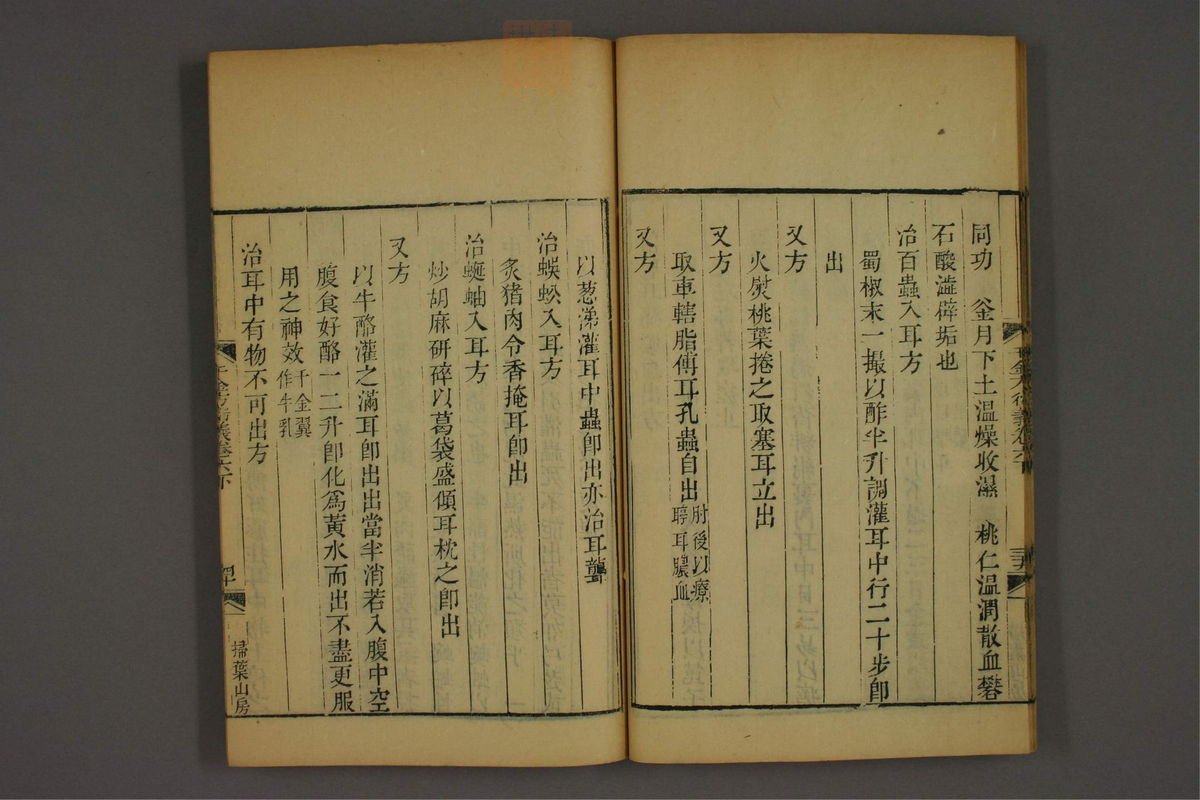 同功　釜月下土溫燥收濕　桃仁溫潤散血礬
石酸澁辟垢也
治百蟲入耳方
蜀椒末一撮以酢半升調灌耳中行二十步卽
出
又方
火熨桃葉捲之取塞耳立出
又方
取車轄脂傅耳孔蟲自出肘後以療聤耳膿血
又方
以葱涕灌耳中蟲卽出亦治耳聾
治蜈蚣入耳方
炙猪肉令香掩耳卽出
治蜒蚰入耳方
炒胡麻研碎以葛袋盛傾耳枕之卽出
又方
以牛酪灌之滿耳卽出出當半消若入腹中空
腹食好酪一二升卽化爲黃水而出不盡更服
用之神效千金翼作牛乳
治耳中有物不可出方
千金方衍義卷六下
掃葉山房